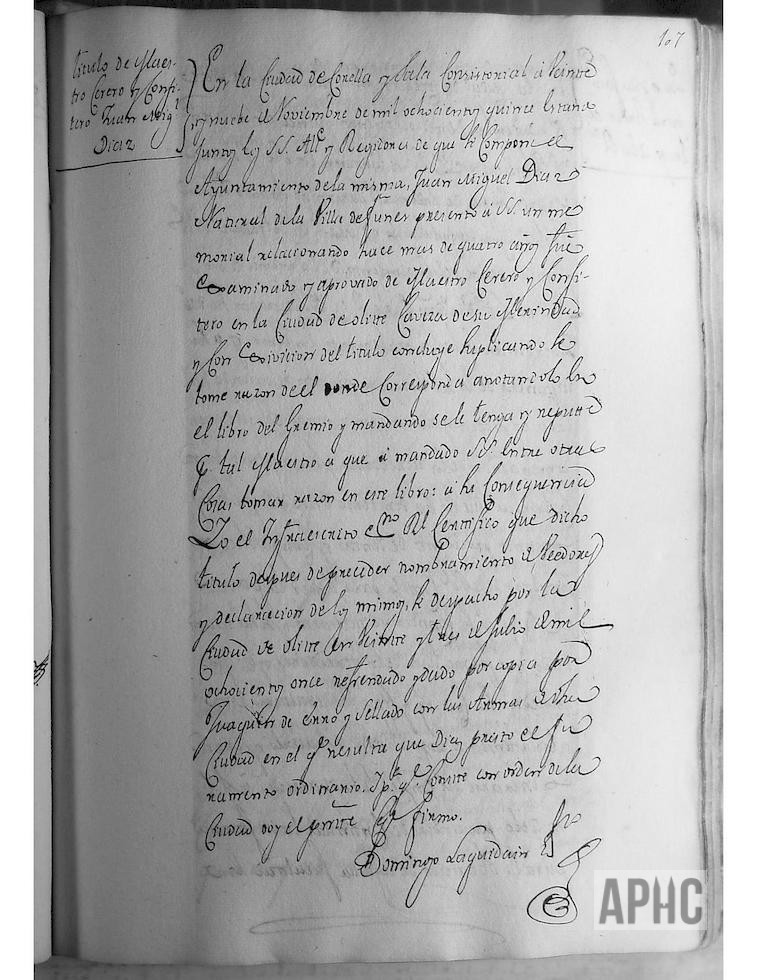 107
titulo de Maes-
tro Cerero y Confi-
tero Juan Migl
Diaz
En la Ciudad de Corella y Sala Consistorial a Veinte
y nuebe de Noviembre de mil ochocientos quince estando
Juntos los SS. Alce y Regidores de que se Compone el
Ayuntamiento de la misma, Juan Miguel Diaz
Natural de la Villa de Funes presento a SS. un me
morial relacionando hace mas de quatro años fue
examinado y aprovado de Maestro Cerero y Confi-
tero en la Ciudad de olite Caveza de su Merindad
y Con exivicion del titulo concluye suplicando se
tome razon de el donde Corresponda anotandolo en
el libro del Gremio y mandando se le tenga y repute
p. tal Maestro a que a mandado SS. entre otras
Cosas tomar razon en este libro: a su Consequencia
Yo el Infraescrito esno Rl Certifico que dicho
titulo despues de preceder nombramiento de Veedores
y declaracion de los mismos, se despacho por la
Ciudad de olite en Veinte y tres de Julio de mil
ochocientos once refrendado y dado por copia por
Juaquin de Erro y Sellado con las Armas de dha
Ciudad en el ql resulta que Diaz presto el ju
ramento ordinario. Y pa. qe. Conste con orden de la
Ciudad doy el prnte Cert firmo.
Domingo Laquidain
APHC